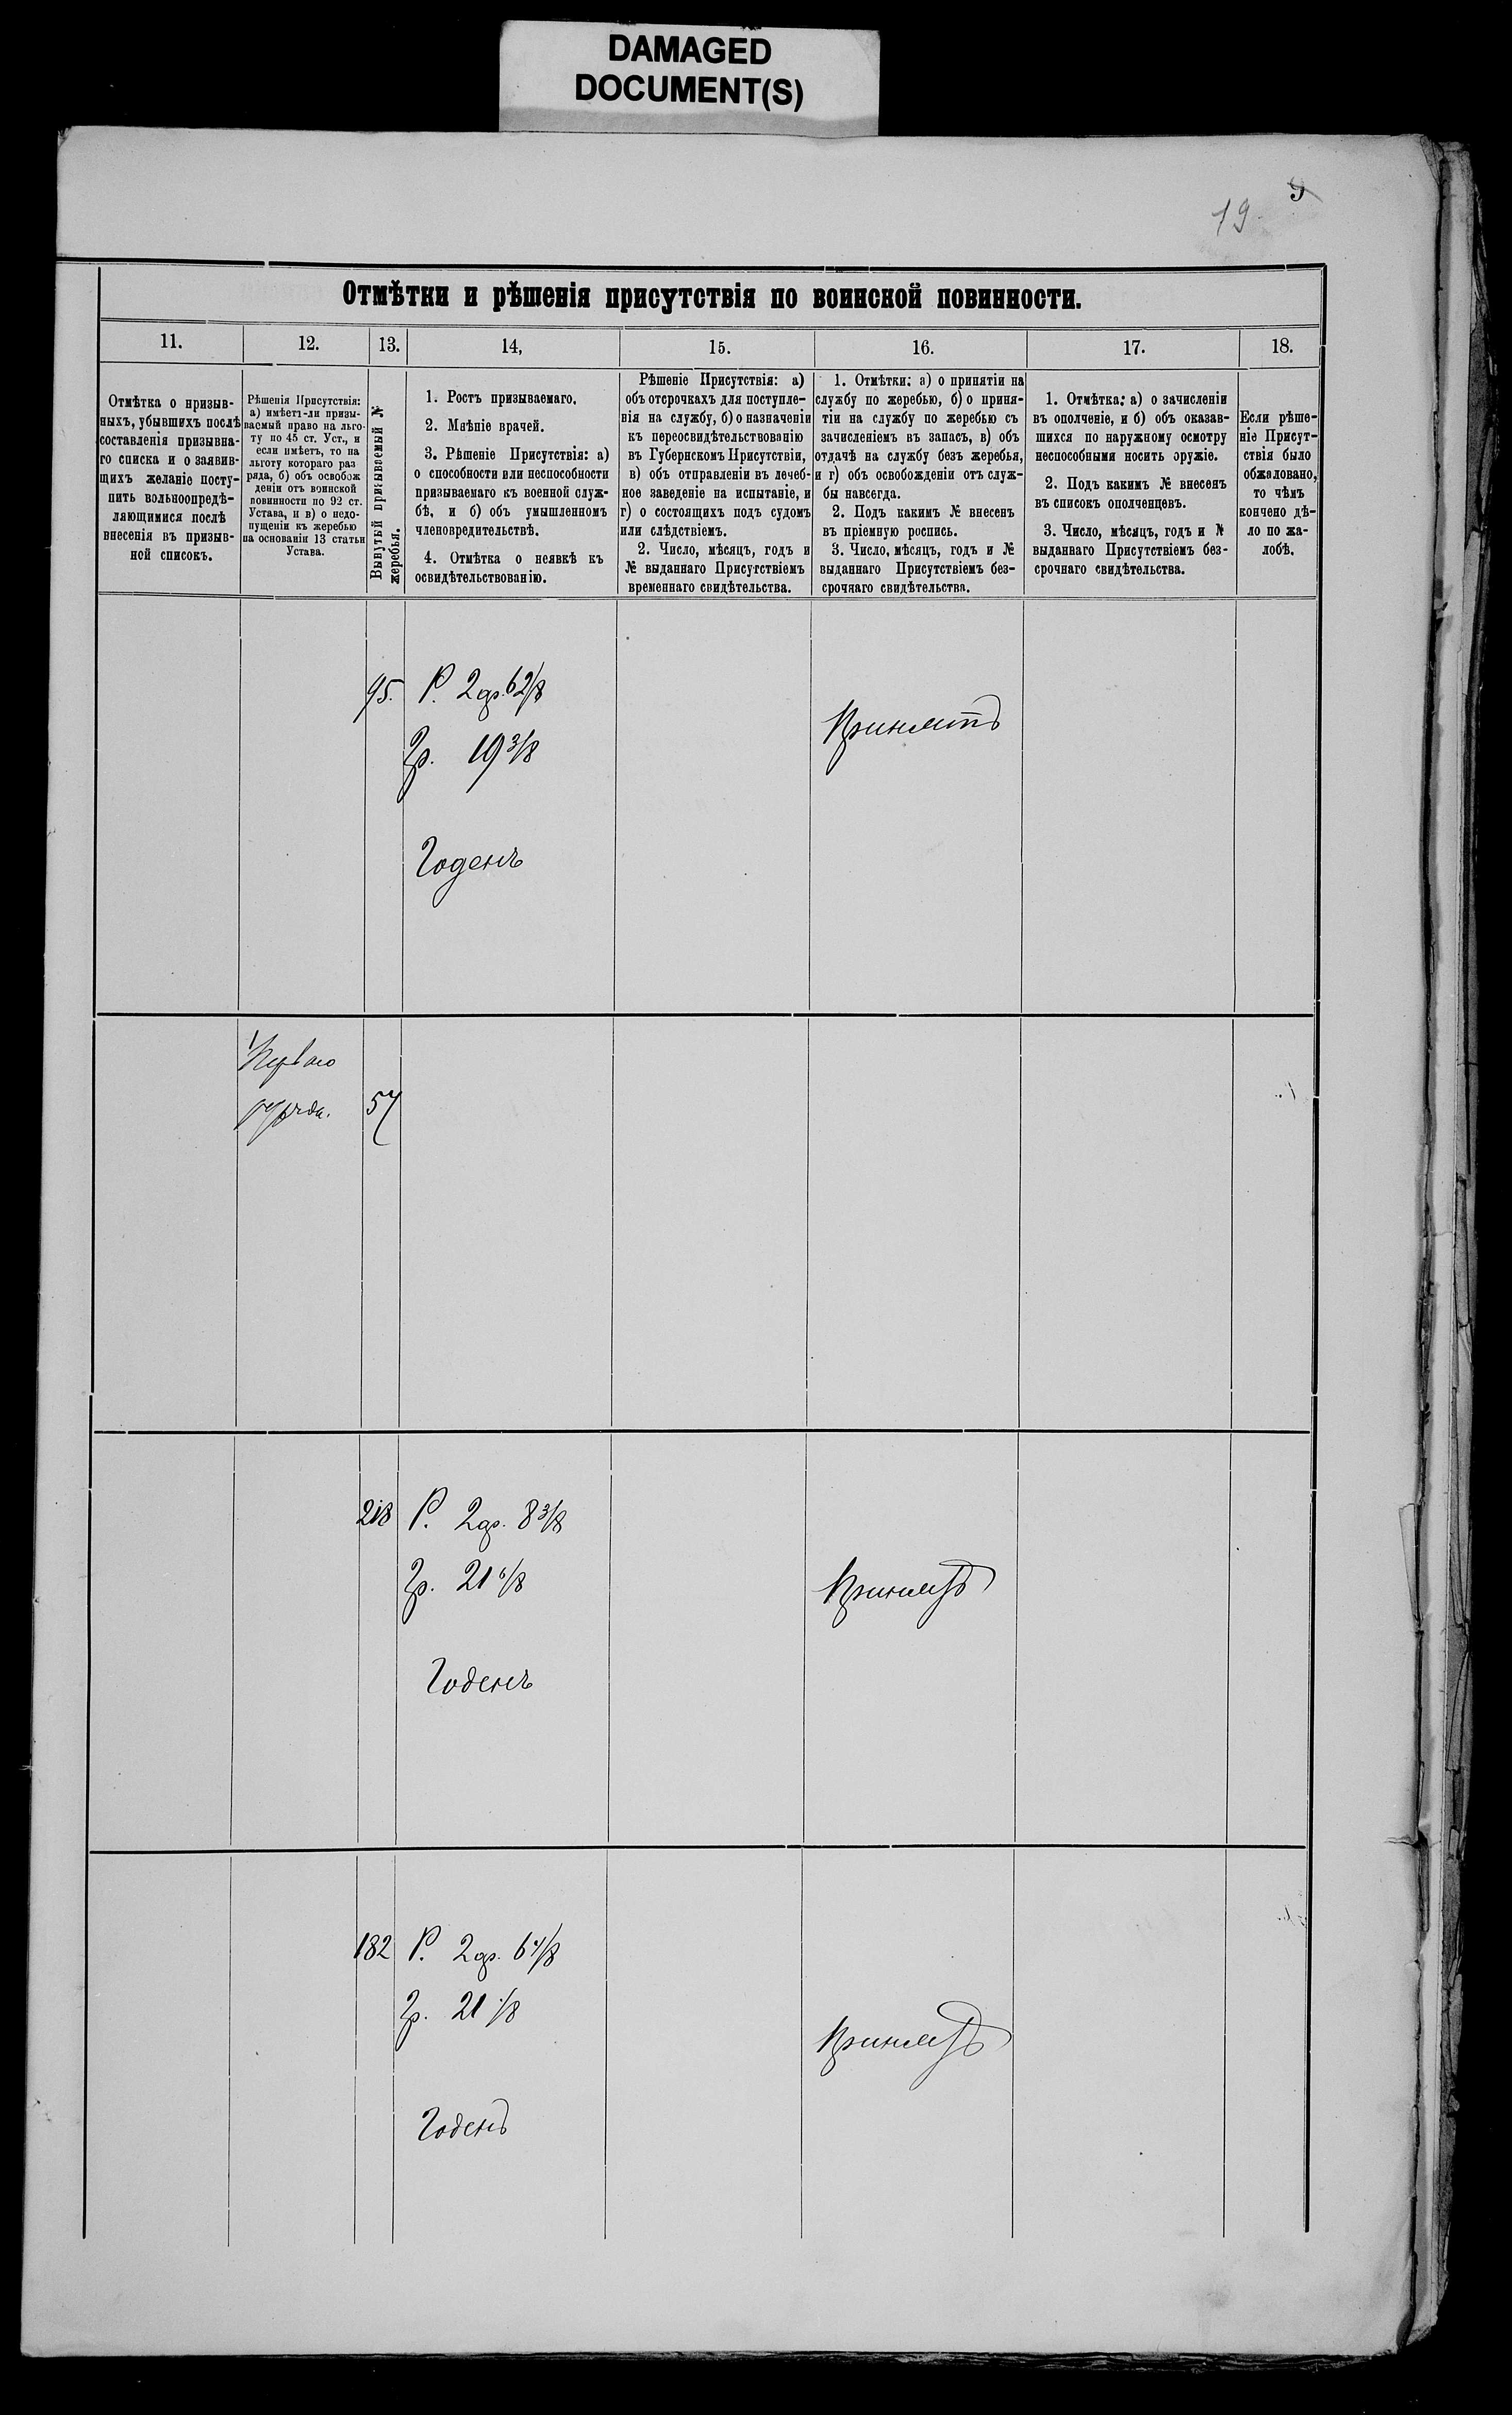 DAMAGED
DOCUMENT(S)
9
19.
Отмѣтки и рѣшенія присутствія по воинской повинности.
11. 12. 13. 14, 15. 16. 17. 18.
Отмѣтка о призыв-
ныхъ, убывшихъ послѣ
составленія призывна-
го списка и о заявив-
щихъ желаніе посту-
пить вольноопредѣ-
ляющимися послѣ
внесенія въ призыв-
ной списокъ.
Рѣшенія Присутствія:
а) имѣетъ-ли призы-
ваемый право на льго-
ту по 45 ст. Уст., и
если имѣетъ, то на
льготу котораго раз
ряда, б) объ освобож
деніи отъ воинской
повинности по 92 ст.
Устава, и в) о недо-
пущеніи къ жеребью
на основаніи 13 статьи
Устава.
Вынутый призываемый №
жеребья.
1. Ростъ призываемаго.
2. Мнѣніе врачей.
3. Рѣшеніе Присутствія: а)
о способности или неспособности
призываемаго къ военной служ-
бѣ, и б) объ умышленномъ
членовредительствѣ.
4. Отмѣтка о неявкѣ къ
освидѣтельствованію.
Рѣшеніе Присутствія: а)
объ отсрочкахъ для поступле-
нія на службу, б) о назначеніи
къ переосвидѣтельствованію
въ Губернскомъ Присутствіи,
в) объ отправленіи въ лечеб-
ное заведеніе на испытаніе, и
г) о состоящихъ подъ судомъ
или слѣдствіемъ.
2. Число, мѣсяцъ, годъ и
№ выданнаго Присутствіемъ
временнаго свидѣтельства.
1. Отмѣтки: а) о принятіи на
службу по жеребью, б) о приня-
тіи на службу по жеребью съ
зачисленіемъ въ запасъ, в) объ
отдачѣ на службу безъ жеребья,
и г) объ освобожденіи отъ служ-
бы навсегда.
2. Подъ какимъ № внесенъ
въ пріемную роспись.
3. Число, мѣсяцъ, годъ и №
выданнаго Присутствіемъ без-
срочнаго свидѣтельства.
1. Отмѣтка: а) о зачисленіи
въ ополченіе, и б) объ оказав-
шихся по наружному осмотру
неспособными носить оружіе.
2. Подъ какимъ № внесенъ
въ списокъ ополченцевъ.
3. Число, мѣсяцъ, годъ и №
выданнаго Присутствіемъ без-
срочнаго свидѣтельства.
Если рѣше-
ніе Присут-
ствія было
обжаловано,
то чѣмъ
кончено дѣ-
ло по жа-
лобѣ.
95. Р. 2 ар. 6 2/8
Гр. 19 3/8
Принятъ
Годенъ
Перваго
разряда. 57
218 Р. 2 ар. 8 3/8
Гр. 21 6/8
Принятъ
Годенъ
182 Р. 2 ар. 6 4/8
Гр. 21 1/8
Принятъ
Годенъ